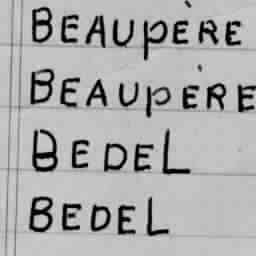 BEAUPÈRE
BEAUPÈRE
BEDEL
BEDEL